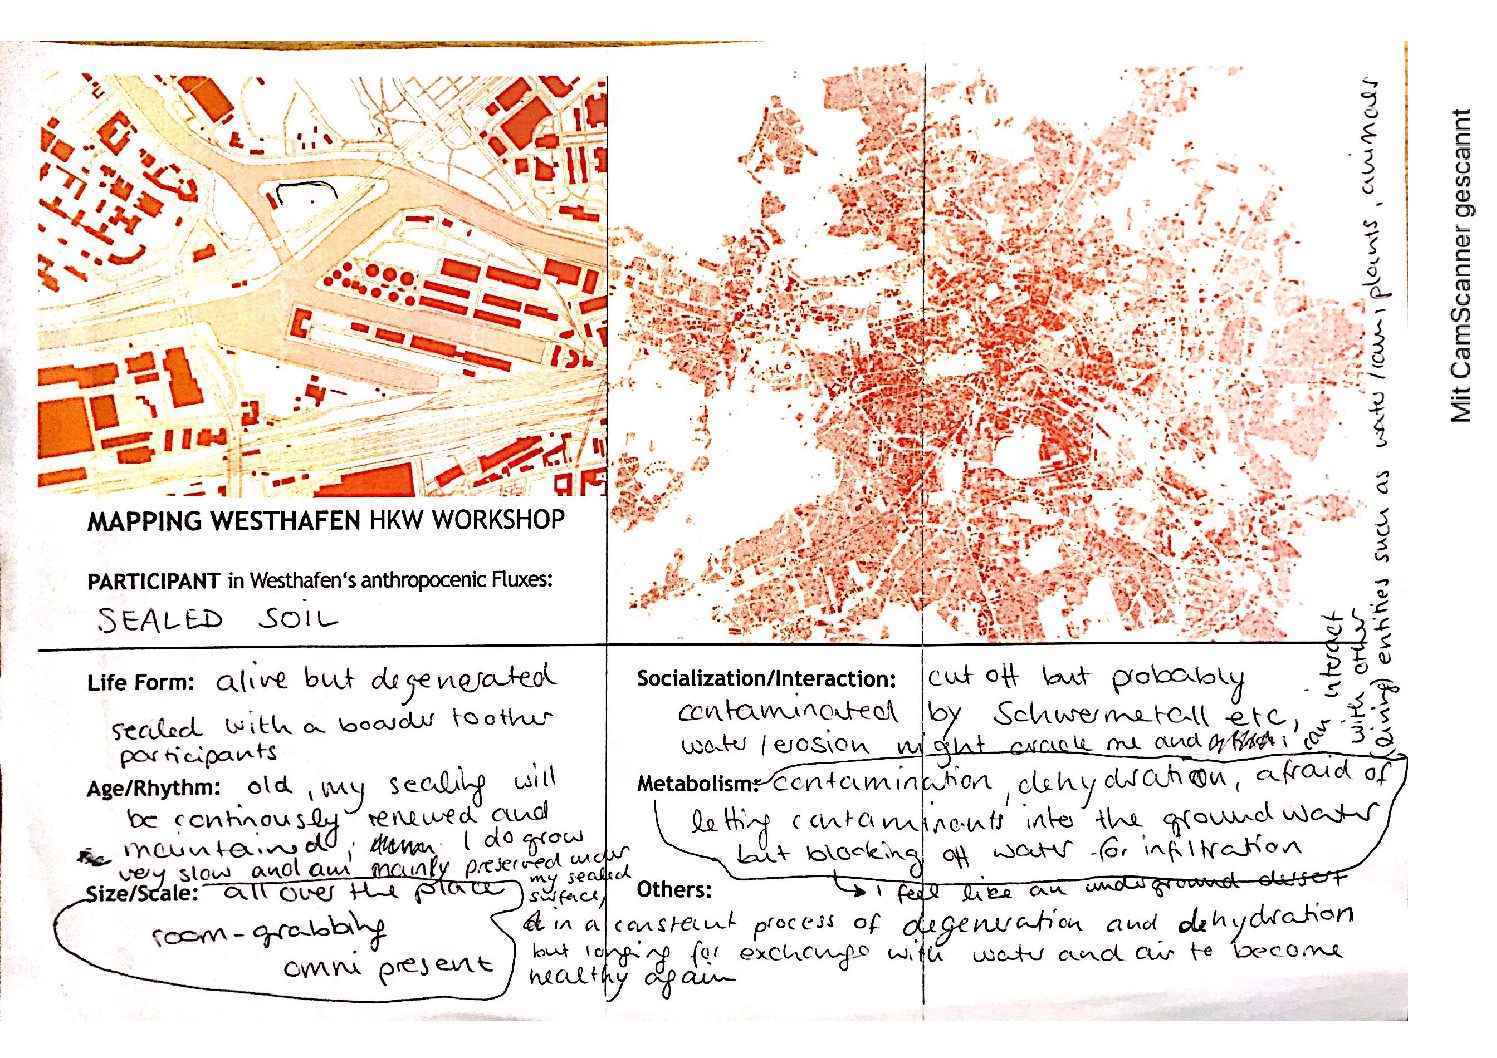 MAPPING WESTHAFEN HKW WORKSHOP
PARTICIPANT in Westhafen's anthropocenic Fluxes:
SEALED SOIL
Life Form: alive but degenerated
sealed with a boarder to other
participants
Age/Rhythm: old, my sealing will
be continously renewed and
maintained, I do grow
very slow and am mainly preserved under
my sealed
surface,
Size/Scale: all over the place
room-grabbing
omni present
Socialization/Interaction: cut off but probably
contaminated by Schwermetall etc,
water/erosion might cracle me and I
can interact
with other
(living) entities such as water/rain, plants, animals
Metabolism: contamination, dehydration, afraid of
letting contaminants into the ground water
but blocking off water for infiltration
Others: → i feel like an underground dessert
in a constant process of degeneration and dehydration
but longing for exchange with water and air to become
healthy again
Mit CamScanner gescannt